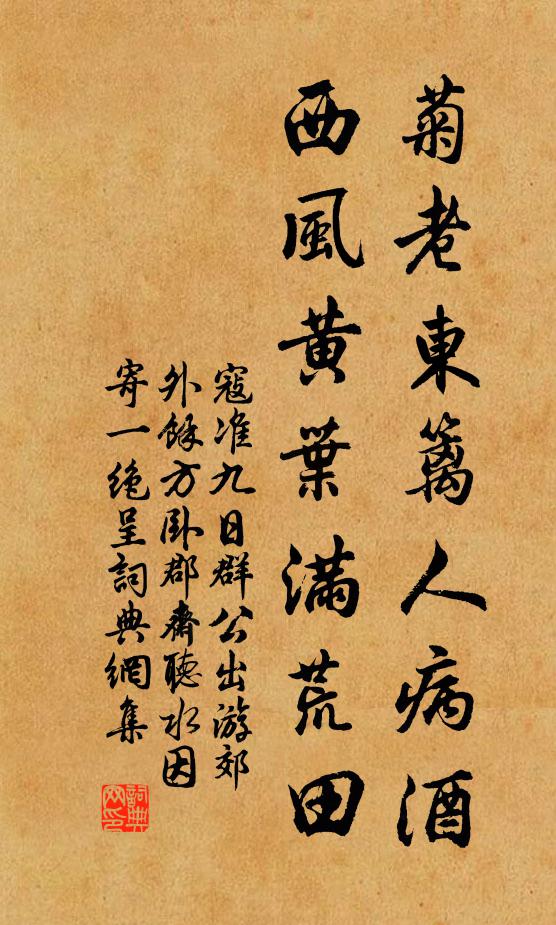 菊老東籬人病酒
西風黃葉滿荒田
寇准九日群公出游郊
外餘方臥郡齋聽水因
寄一绝呈詞典網集
詞典
网印